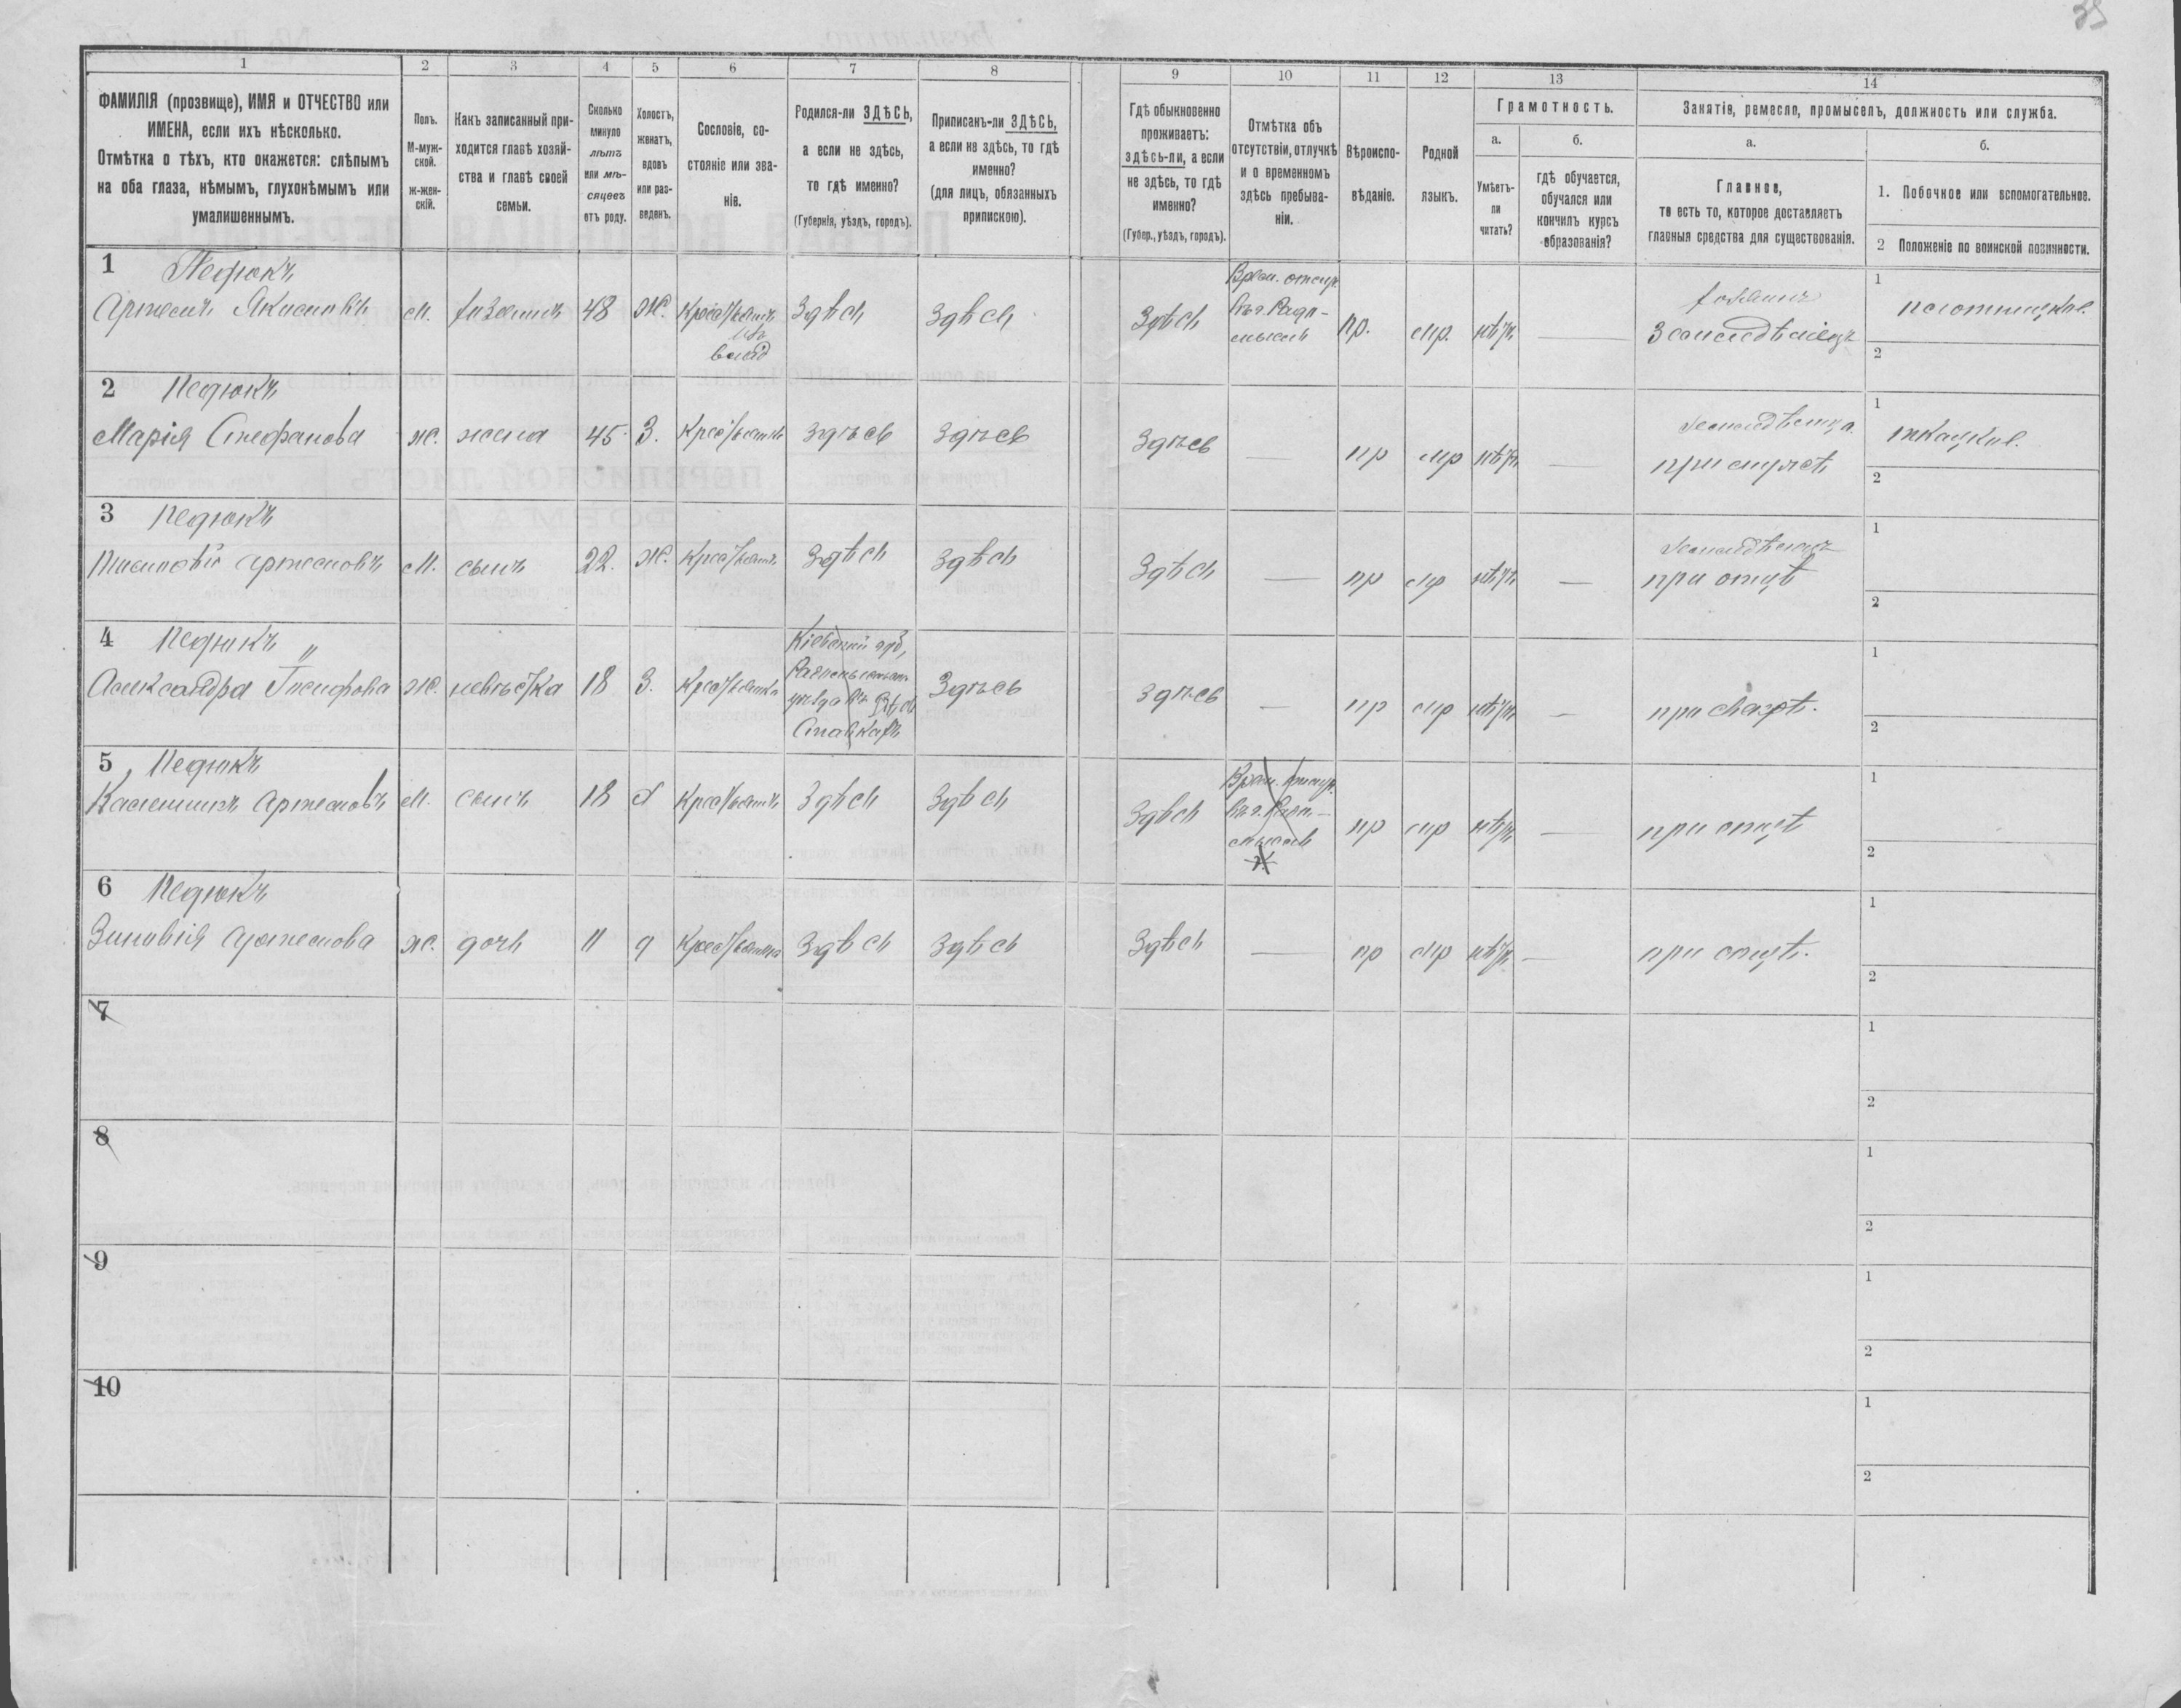 35
1
2
3
4
5
6
7
8
9
10
11
12
13
14
ФАМИЛІЯ (прозвище), ИМЯ и ОТЧЕСТВО или
ИМЕНА, если ихъ нѣсколько.
Отмѣтка о тѣхъ, кто окажется: слѣпымъ
на оба глаза, нѣмымъ, глухонѣмымъ или
умалишеннымъ.
Полъ.
М-муж-
ской.
ж-жен-
скій.
Какъ записанный при-
ходится главѣ хозяй-
ства и главѣ своей
семьи.
Сколько
минуло
лѣтъ
или мѣ-
сяцевъ
отъ роду.
Холостъ,
женатъ,
вдовъ
или раз-
веденъ.
Сословіе, со-
стояніе или зва-
ніе.
Родился-ли ЗДѢСЬ,
а если не здѣсь,
то гдѣ именно?
(Губернія, уѣздъ, городъ).
Приписанъ-ли ЗДѢСЬ,
а если не здѣсь, то гдѣ
именно?
(для лицъ, обязанныхъ
припискою).
Гдѣ обыкновенно
проживаетъ:
здѣсь-ли, а если
не здѣсь, то гдѣ
именно?
(Губер., уѣздъ, городъ).
Отмѣтка объ
отсутствіи, отлучкѣ
и о временномъ
здѣсь пребыва-
ніи.
Вѣроиспо-
вѣданіе.
Родной
языкъ.
Грамотность.
а.
Умѣетъ-
ли
читать?
б.
гдѣ обучается,
обучался или
кончилъ курсъ
образованія?
Занятіе, ремесло, промыселъ, должность или служба.
а.
Главное,
то есть то, которое доставляетъ
главныя средства для существованія.
б.
1. Побочное или вспомогательное.
2 Положеніе по воинской повинности.
1 Педюкъ
Артемъ Якимовъ м. хозяинъ 48 ж. Крестьянинъ Здѣсь Здѣсь Здѣсь
Врем. отсут.
въ г. Радо-
мыслѣ
пр. мр. нѣтъ —
хозяинъ
Земледѣлецъ
1 плотницкое.
2
2 Педюкъ
Марія Стефанова ж. жена 45 З. Крестьянка здѣсь здѣсь здѣсь — пр мр нѣтъ —
при мужѣ
1 ткацкое.
2
3 Педюкъ
Тимофѣй Артемовъ м. сынъ 22. ж. Крестьян. здѣсь здѣсь Здѣсь — пр мр нѣтъ —
при отцѣ
1
2
4 Педюкъ
Александра ж. невѣстка 18 З. Крестьянка
Кіевской губ,
уѣзда Здѣсь
Ставкахъ
здѣсь здѣсь — пр мр нѣтъ —
при свекрѣ.
1
2
5 Педюкъ
Артемовъ м. сынъ 18 х Крестьян. здѣсь здѣсь здѣсь
Врем. отсут.
въ г. Радо-
мыслѣ
пр мр нѣтъ — при отцѣ
1
2
6 Педюкъ
Зиновія Артемова ж. дочь 11 д Крестьянка здѣсь здѣсь здѣсь — пр мр нѣтъ — при отцѣ.
1
2
7
1
2
8
1
2
9
1
2
10
1
2